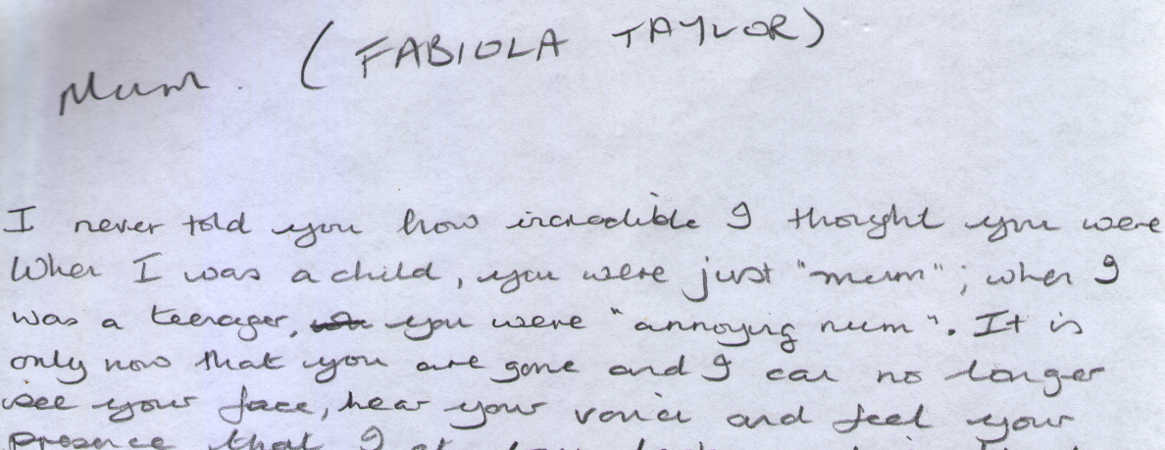 Mum. (FABIOLA TAYLOR)
I never told you how incredible I thought you were
When I was a child, you were just "mum"; when I
was a teenager, you were "annoying mum". It is
only now that you are gone and I can no longer
see your face, hear your voice and feel your
presence that I